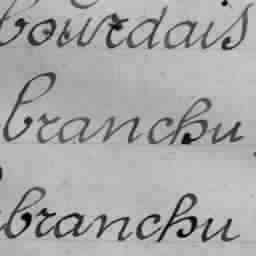 bourdais
branchu
branchu